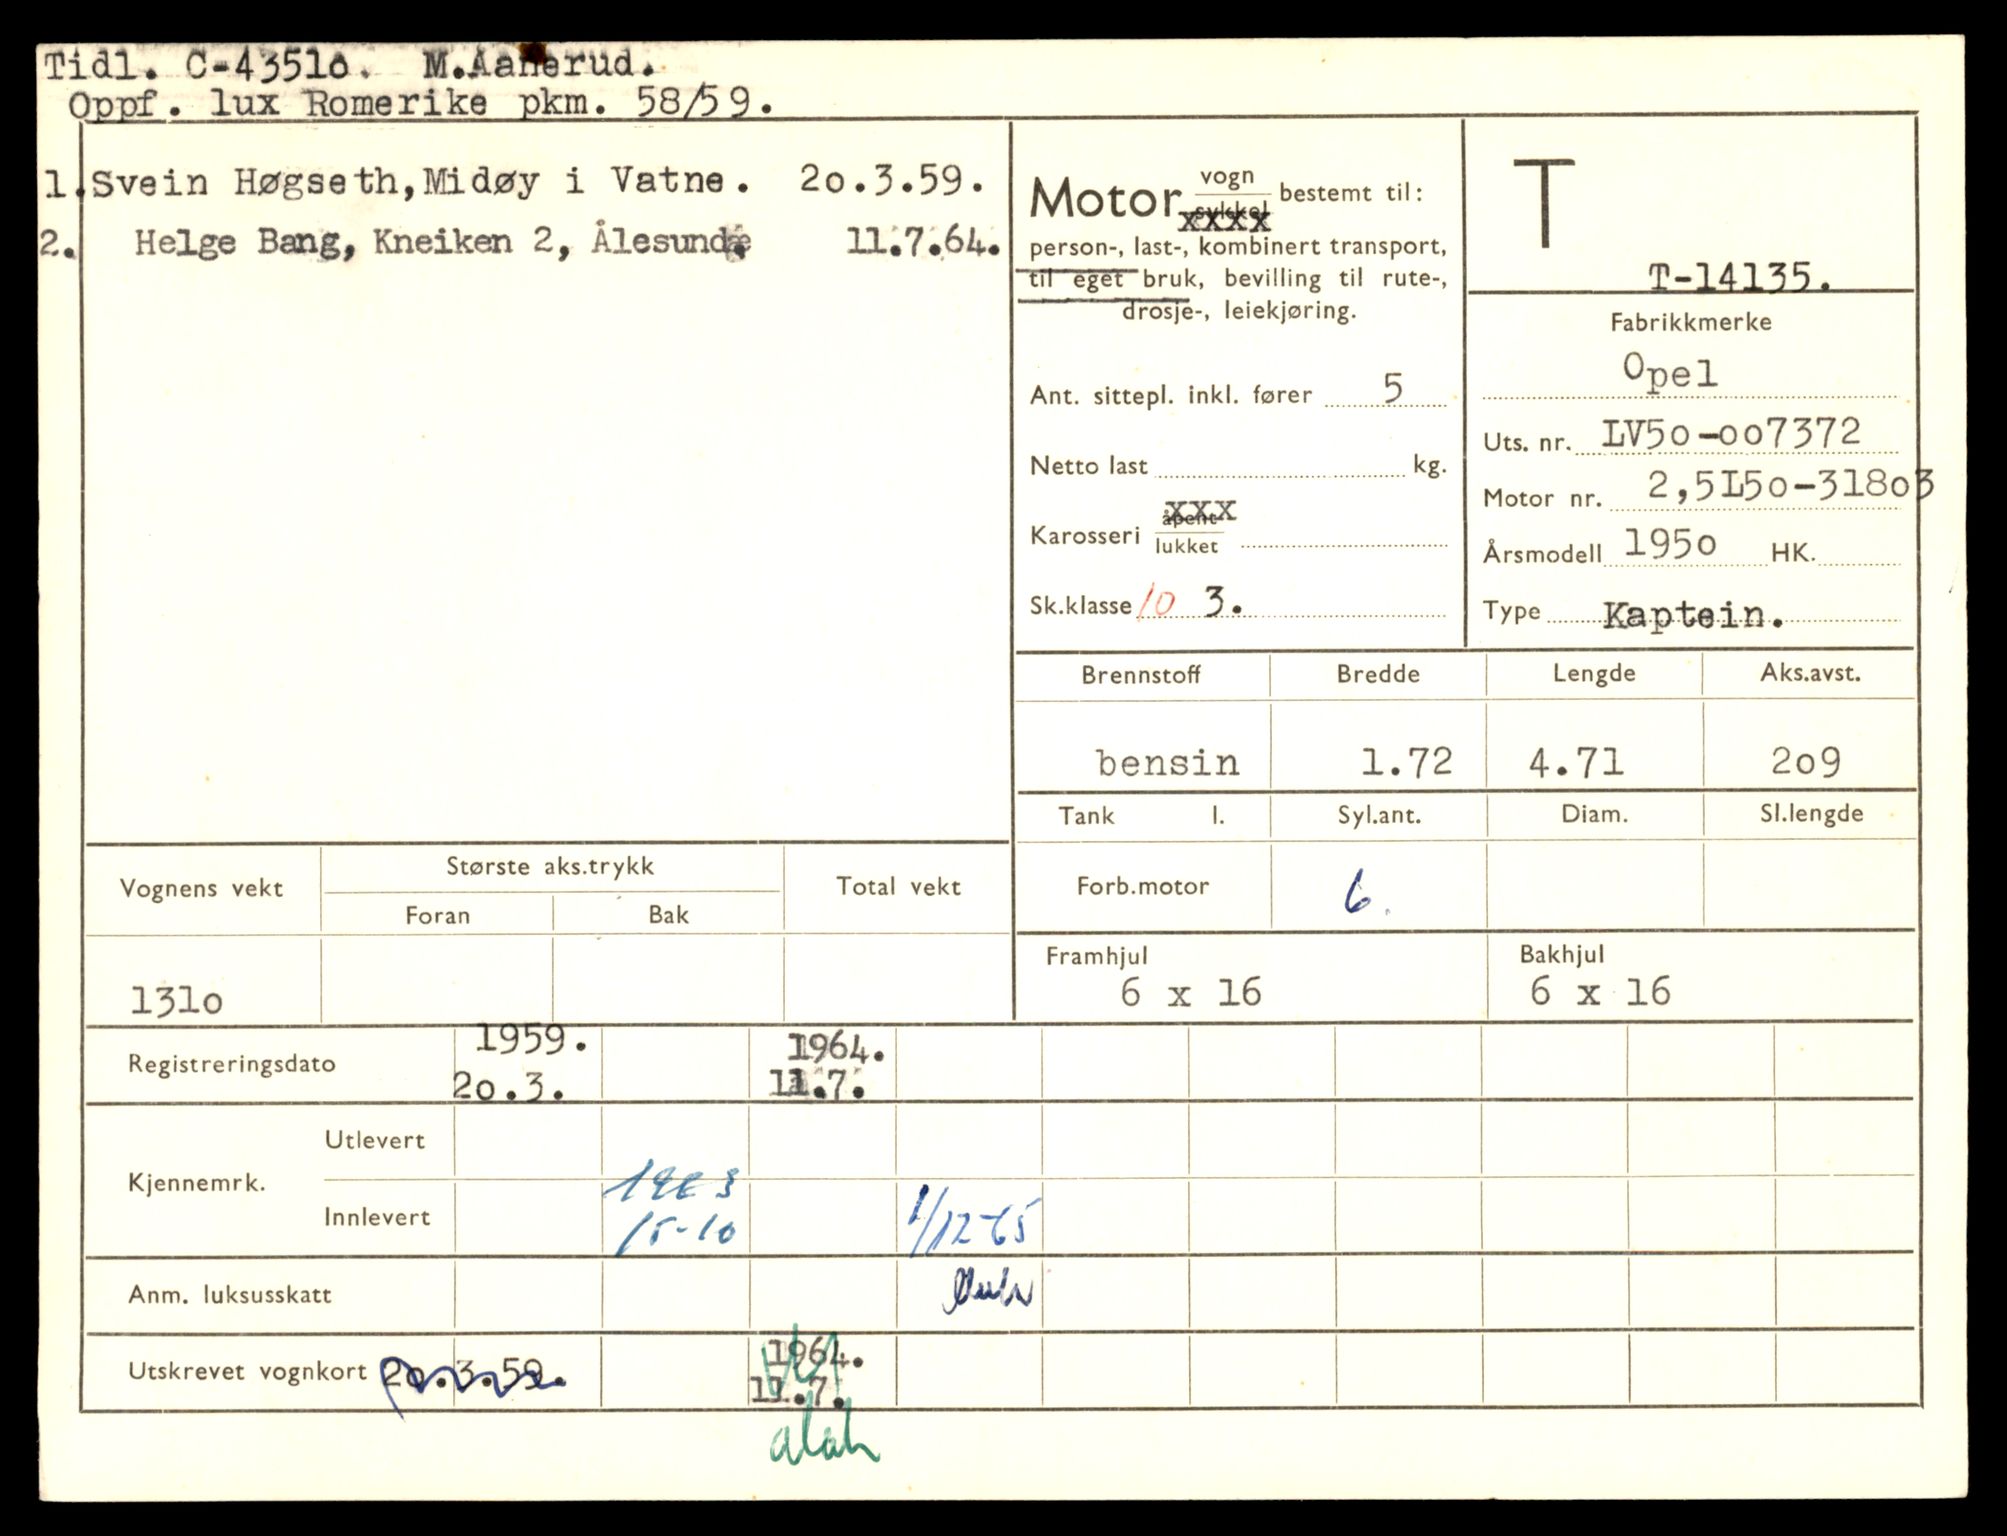 Tidl. C-43510. M.Aanerud.
Oppf. lux Romerike pkm. 58/59.
1. Svein Høgseth, Midøy i Vatne. 20.3.59.
2. Helge Bang, Kneiken 2, Ålesund. 11.7.64.
Motor vogn
sykkel bestemt til:
person-, last-, kombinert transport,
til eget bruk, bevilling til rute-,
drosje-, leiekjøring.
Ant. sittepl. inkl. fører 5
Netto last kg.
Karosseri åpent
lukket
Sk.klasse 10 3.
T
T-14135.
Fabrikkmerke
Opel
Uts. nr. LV50-007372
Motor nr. 2,5L50-31803
Årsmodell 1950 HK.
Type Kaptein.
Brennstoff Bredde Lengde Aks.avst.
bensin 1.72 4.71 209
Tank l. Syl.ant. Diam. Sl.lengde
Forb.motor 6
Framhjul Bakhjul
6 x 16 6 x 16
Vognens vekt Største aks.trykk Total vekt
Foran Bak
1310
Registreringsdato 1959. 1964.
20.3. 11.7.
Kjennemrk. Utlevert
Innlevert 1963
15-10 1/12-65
Anm. luksusskatt
Utskrevet vognkort 20.3.59. 1964.
11.7.